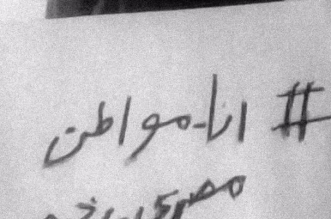 # انا_مواطن
مصرى